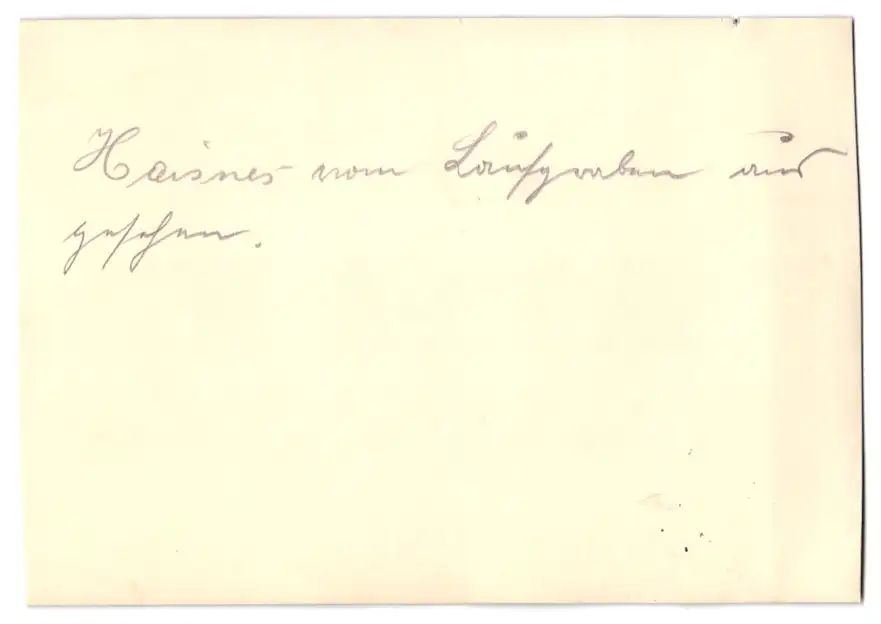 Haisnes vom Laufgraben aus
gesehen.